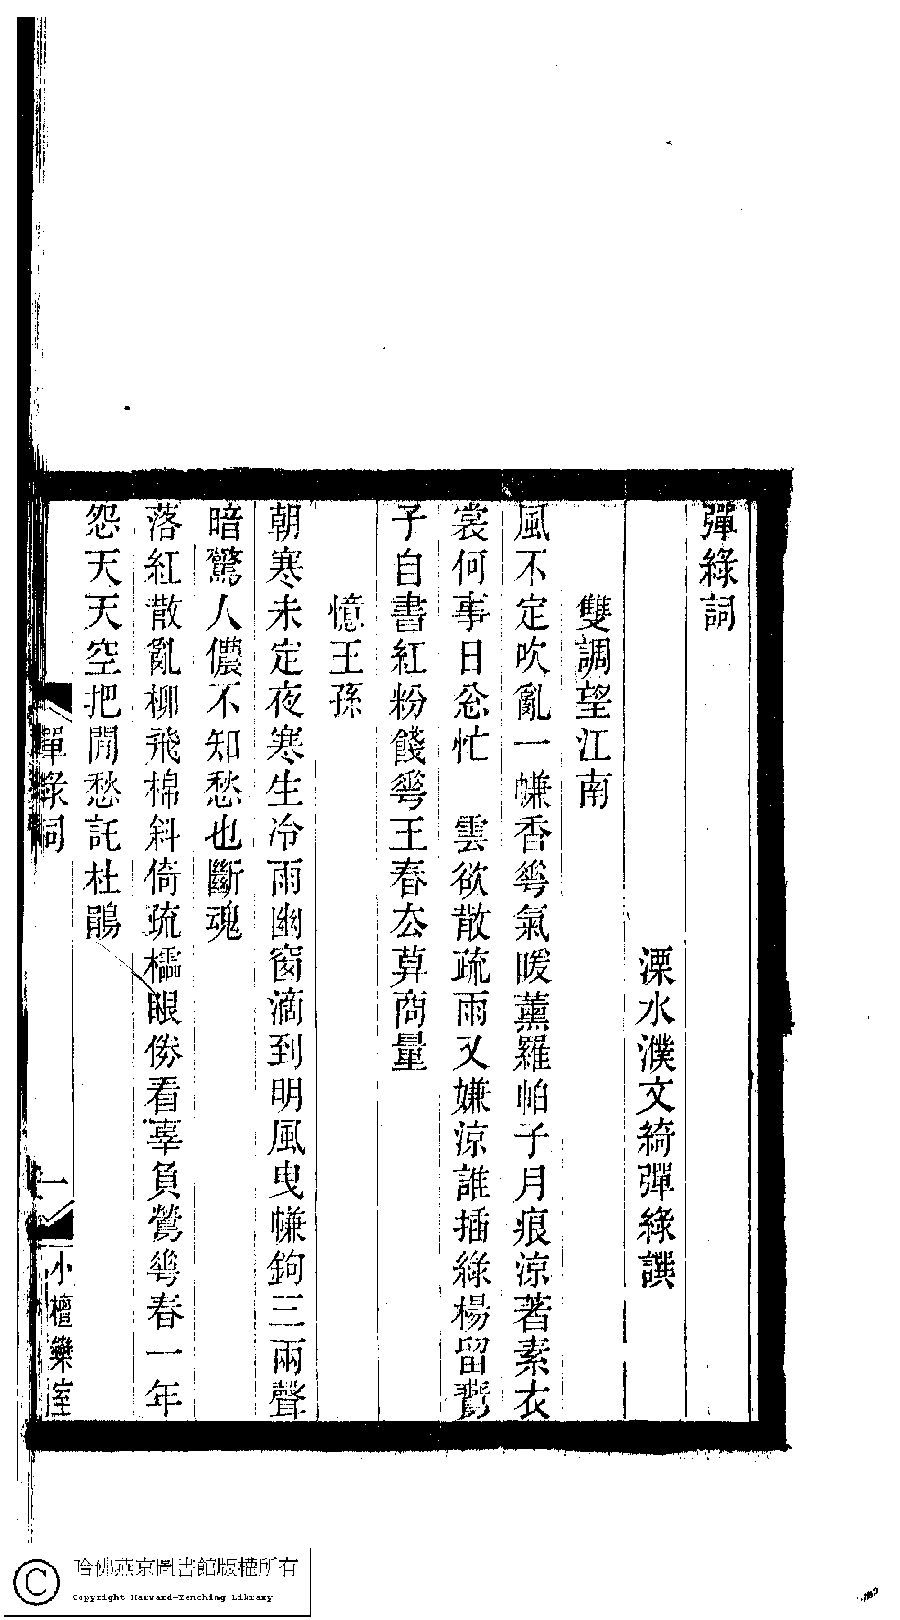 彈綠詞
溧水濮文綺彈綠譔
雙調望江南
風不定吹亂一㡘香蕚氣暖薰羅帕子月痕涼著素衣
裳何事日怱忙　雲欲散疏雨又嫌涼誰插綠楊留鸎
子自書紅粉餞蕚王春厺算商量
憶王孫
朝寒未定夜寒生冷雨幽窗滴到明風曳㡘鉤三兩聲
暗驚人儂不知愁也斷魂
落紅散亂柳飛棉斜倚疏櫺眼倦看辜負鶯蕚春一年
怨天天空把閒愁託杜鵑
彈綠詞
一
小檀欒室
哈佛燕京圖書館版權所有
Copyright Harvard-Yenching Library